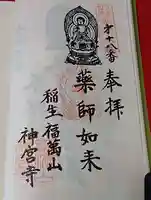 奉拝
才十八番
薬師如来
稲生福萬山
神宮寺